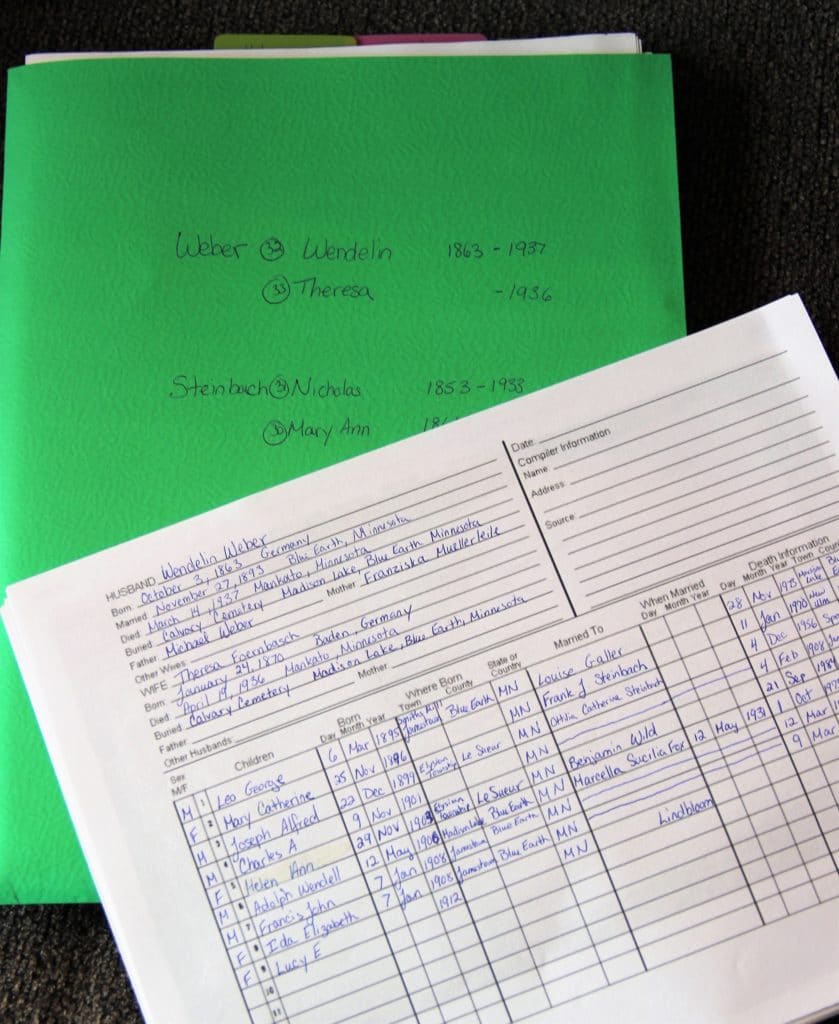 Weber 32 Wendelin 1863 - 1937
33 Theresa - 1936
Steinbach 34 Nicholas 1853 - 1933
35 Mary Ann
Date
Compiler Information
Name
Address
Source
HUSBAND Wendelin Weber
Born October 3, 1863 Germany
Married November 27, 1893 Blue Earth, Minnesota
Died March 14, 1937 Mankato, Minnesota
Buried Calvary Cemetery Madison Lake, Blue Earth Minnesota
Father Michael Weber Mother Franziska Muellerleile
Other Wives
WIFE Theresa Foernbasch
Born January 24, 1870 Baden, Germany
Died April 19, 1936 Mankato, Minnesota
Buried Calvary Cemetery Madison Lake, Blue Earth, Minnesota
Father Mother
Other Husbands
Sex M/F Children Born Day Month Year Where Born Town County State or Country Married To When Married Day Month Year Death Information Day Month Year Town
M 1 Leo George 6 Mar 1895 Jamestown Blue Earth MN Louise Galler 28 Nov
F 2 Mary Catherine 25 Nov 1896 MN Frank J Steinbach 11 Jan 1970 New
M 3 Joseph Alfred 22 Dec 1899 Elysian Township Le Sueur MN Othilia Catherine Steinbach 4 Dec 1956
M 4 Charles A 9 Nov 1901 MN 4 Feb 1908
F 5 Helen Ann 29 Nov 1903 Elysian Township Le Sueur MN Benjamin Wild 21 Sep
M 6 Adolph Wendell 12 May 1906 Madison Lake Blue Earth MN Marcella Sucilia Fox 12 May 1931 1 Oct
M 7 Francis John 7 Jan 1908 Jamestown Blue Earth MN 12 Mar
F 8 Ida Elizabeth 7 Jan 1908 Jamestown Blue Earth MN Lindbloom 9 Mar
F 9 Lucy E 1912 MN
10
11